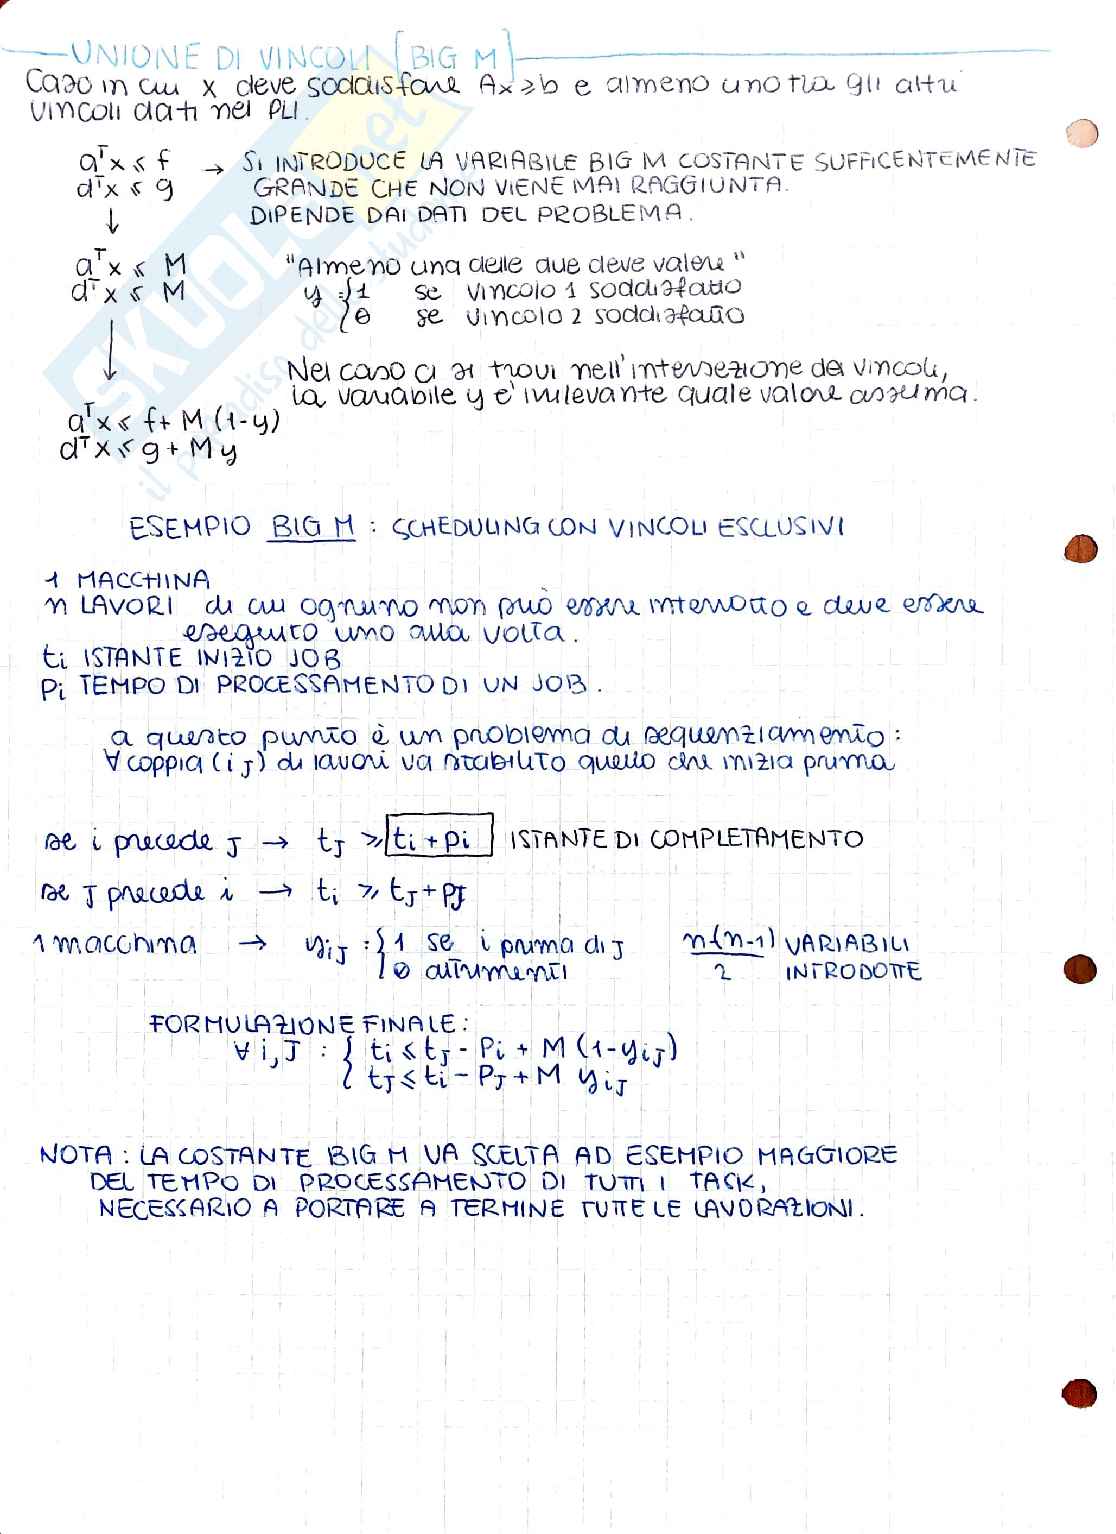 UNIONE DI VINCOLI [BIG M]
Caso in cui x deve soddisfare Ax ≥ b e almeno uno tra gli altri
vincoli dati nel PLI.
aᵀx ≤ f → SI INTRODUCE LA VARIABILE BIG M COSTANTE SUFFICENTEMENTE
dᵀx ≤ g GRANDE CHE NON VIENE MAI RAGGIUNTA.
↓ DIPENDE DAI DATI DEL PROBLEMA.
aᵀx ≤ M "Almeno una delle due deve valere"
dᵀx ≤ M y = { 1 se vincolo 1 soddisfatto
0 se vincolo 2 soddisfatto
↓ Nel caso ci si trovi nell'intersezione dei vincoli,
la variabile y è irrilevante quale valore assuma.
aᵀx ≤ f + M (1-y)
dᵀx ≤ g + M y
ESEMPIO BIG M : SCHEDULING CON VINCOLI ESCLUSIVI
1 MACCHINA
n LAVORI di cui ognuno non può essere interrotto e deve essere
eseguito uno alla volta.
ti ISTANTE INIZIO JOB
Pi TEMPO DI PROCESSAMENTO DI UN JOB.
a questo punto è un problema di sequenziamento :
∀ coppia (i J) di lavori va stabilito quello che inizia prima
se i precede J → tJ ≥ ti + pi ISTANTE DI COMPLETAMENTO
se J precede i → ti ≥ tJ + pJ
1 macchina → yiJ : { 1 se i prima di J n·(n-1)/2 VARIABILI
0 altrimenti INTRODOTTE
FORMULAZIONE FINALE :
∀ i, J : { ti ≤ tJ - Pi + M (1-yiJ)
tJ ≤ ti - PJ + M yiJ
NOTA : LA COSTANTE BIG M VA SCELTA AD ESEMPIO MAGGIORE
DEL TEMPO DI PROCESSAMENTO DI TUTTI I TASK,
NECESSARIO A PORTARE A TERMINE TUTTE LE LAVORAZIONI.
SKUOLA.net
il paradiso dello studente